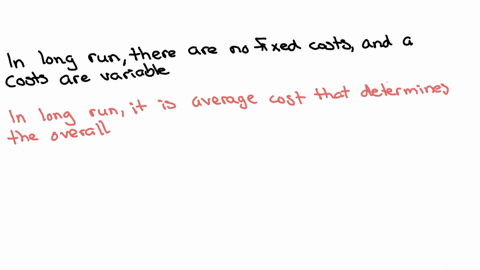 In long run, there are no fixed costs, and a
costs are variable
In long run, it is average cost that determines
the overall